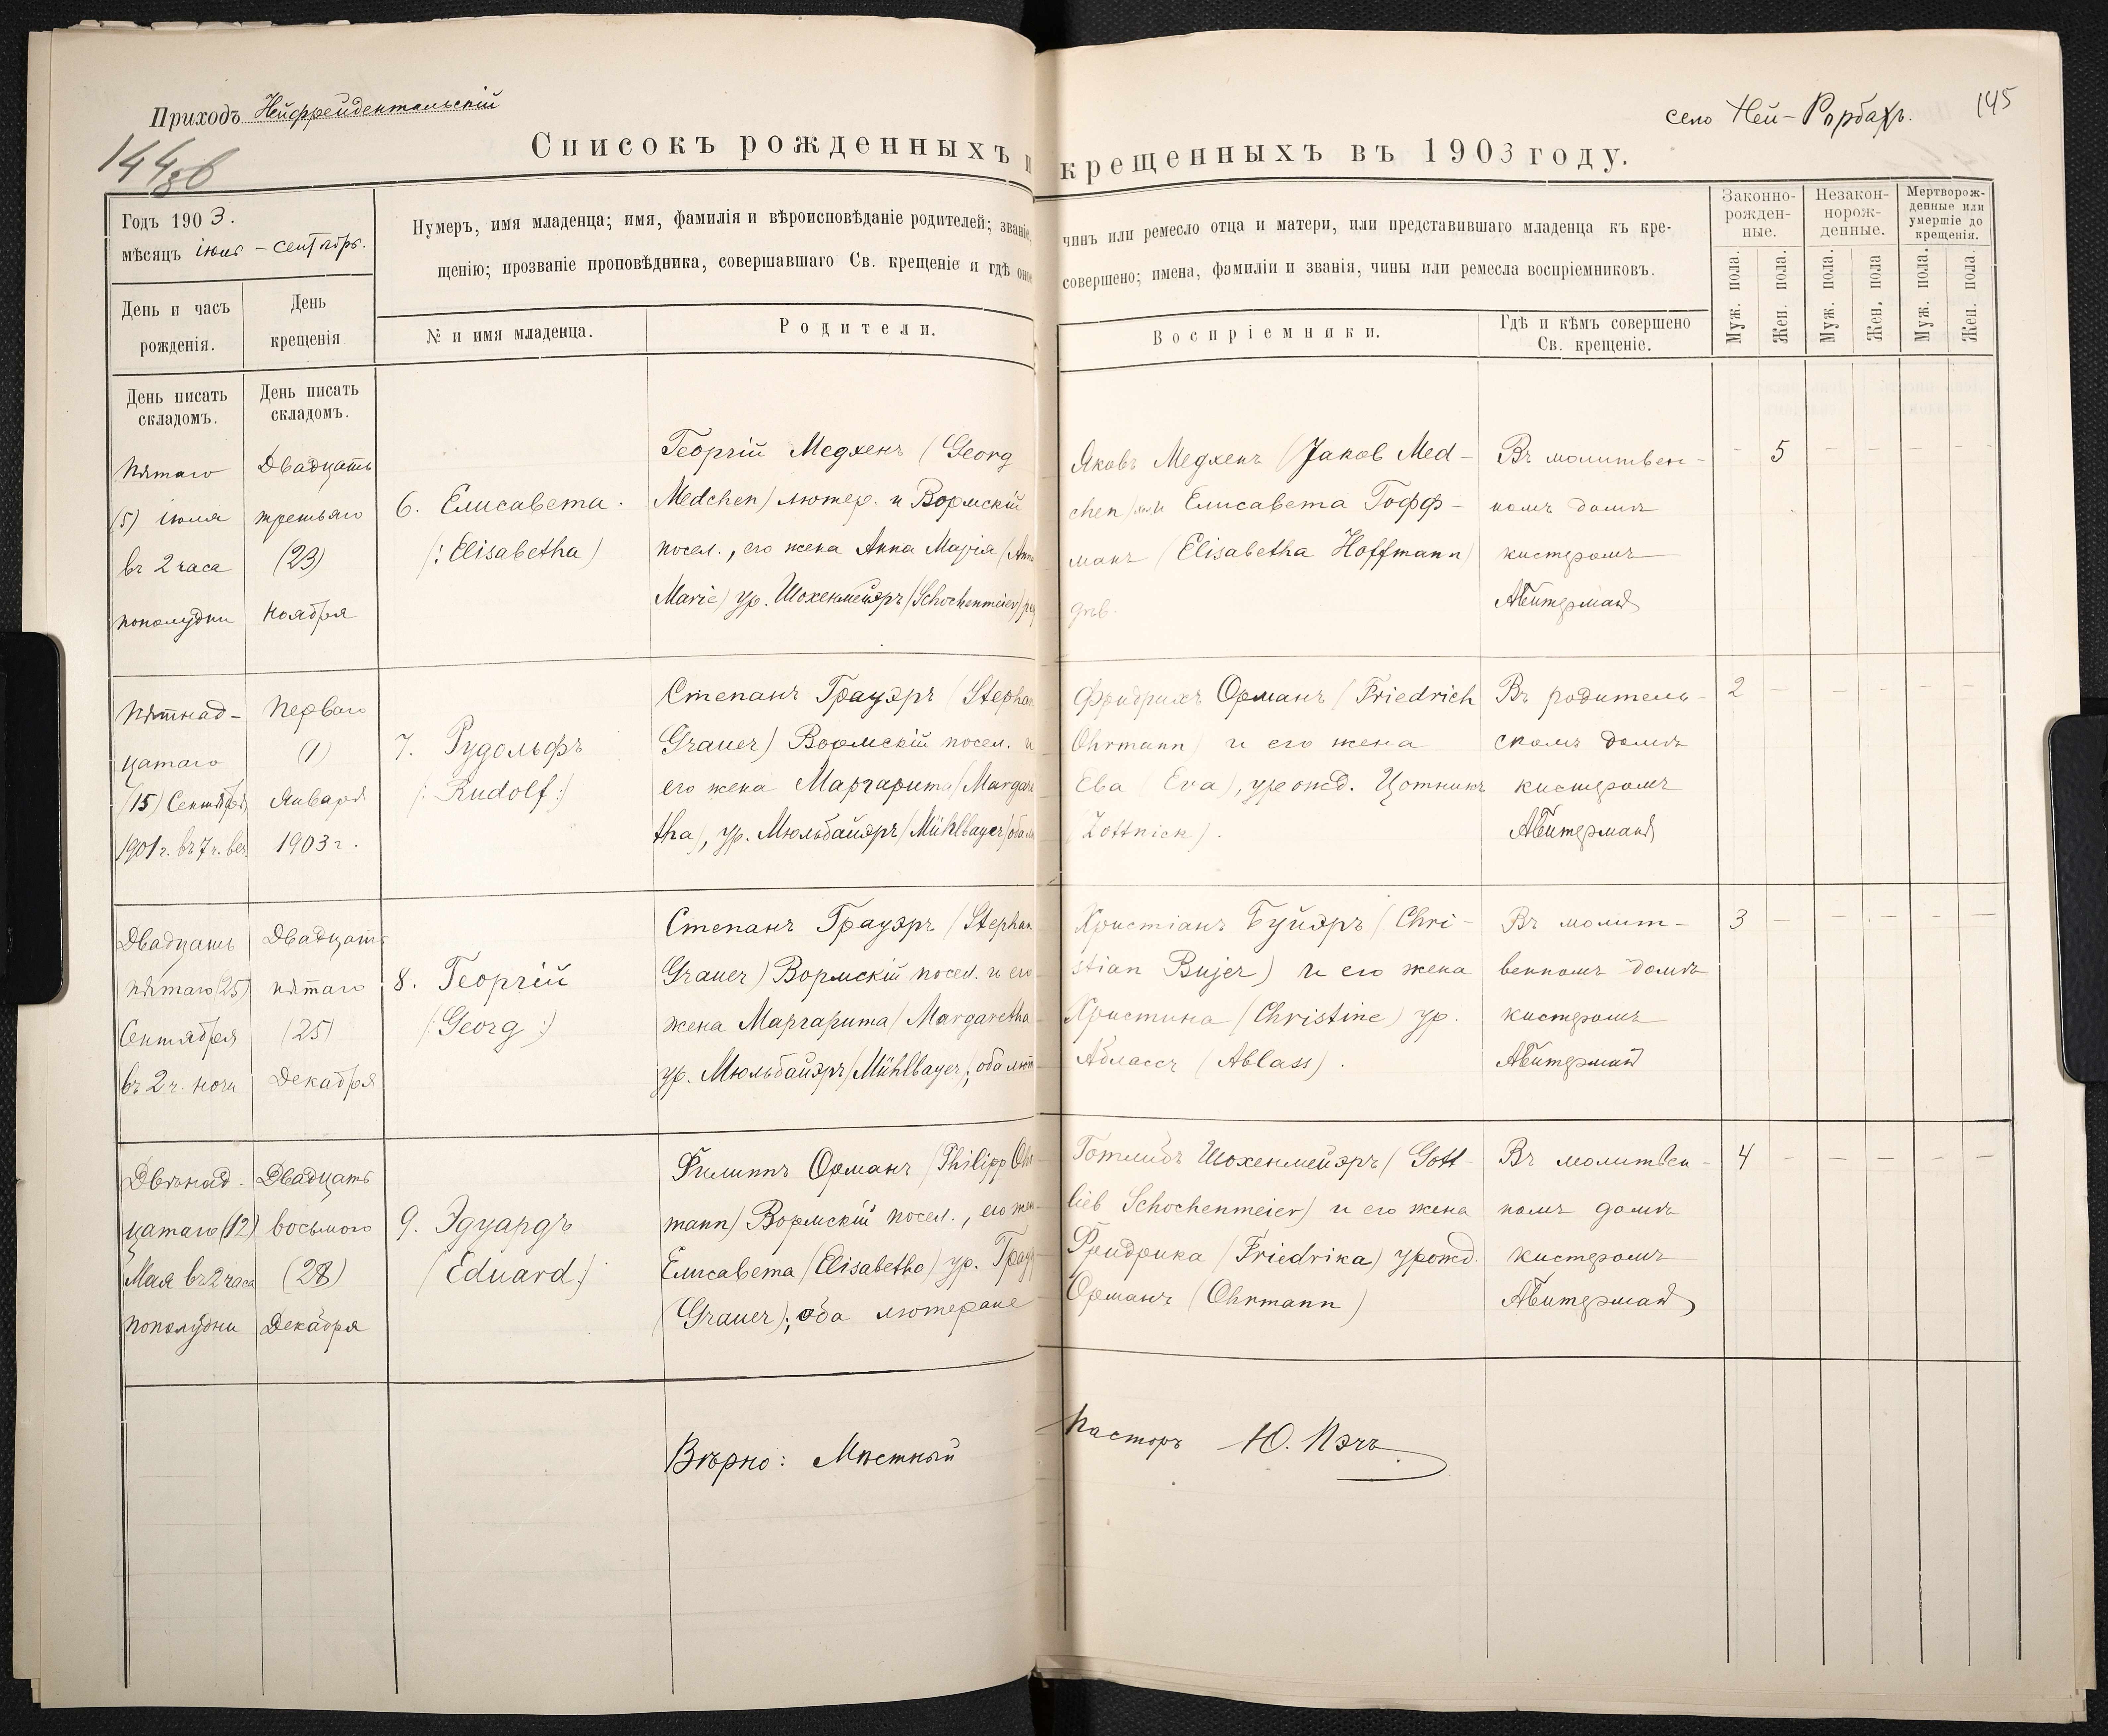 Приходъ Нейфрейдентальскій
село Ней-Рорбахъ.
145
144об
Списокъ рожденныхъ и крещенныхъ въ 1903 году.
Годъ 1903.
мѣсяцъ іюнь - сентябрь.
День и часъ рожденія.
День крещенія
Нумеръ, имя младенца; имя, фамилія и вѣроисповѣданіе родителей; званіе, чинъ или ремесло отца и матери, или представившаго младенца къ кре-
щенію; прозваніе проповѣдника, совершавшаго Св. крещеніе и гдѣ оное совершено; имена, фамиліи и званія, чины или ремесла воспріемниковъ.
№ и имя младенца.
Родители.
Воспріемники.
Гдѣ и кѣмъ совершено
Св. крещеніе.
Законно-
рожден-
ные.
Незакон-
норож-
денные.
Мертворож-
денные или
умершіе до
крещенія.
Муж. пола.
Жен. пола.
Муж. пола.
Жен. пола
Муж. пола.
Жен. пола.
День писать
складомъ.
День писать
складомъ.
Пятаго
(5) іюля
въ 2 часа
пополудни
Двадцать
третьяго
(23)
Ноября
6. Елисавета.
(: Elisabetha)
Георгій Медхенъ (Georg
Medchen) лютер. и Вормскій
посел., его жена Анна Марія (Anna
Marie) ур. Шохенмейэръ (Schochenmeier)
Яковъ Медхенъ (Jakob Med-
chen) и Елисавета Гофф-
манъ (Elisabetha Hoffmann)
дѣв.
Въ молитвен-
номъ домѣ
кистеромъ
Абитерманъ
- 5 - - - -
Пятнад-
цатаго
(15) Сентября
1901 г. въ 7 ч. веч.
Перваго
(1)
Января
1903 г.
7. Рудольфъ
(: Rudolf :)
Степанъ Грауэръ (Stephan
Grauer) Вормскій посел. и
его жена Маргарита (Margare
tha), ур. Мюльбайэръ (Mühlbayer)
Фридрихъ Орманъ (Friedrich
Ohrmann) и его жена
Ева (Eva), урожд. Цотникъ
(Zottnick).
Въ родитель-
скомъ домѣ
кистеромъ
Абитерманъ
2 - - - - -
Двадцать
пятаго (25)
Сентября
въ 2 ч. ночи
Двадцать
пятаго
(25)
Декабря
8. Георгій
(: Georg :)
Степанъ Грауэръ (Stephan
Grauer) Вормскій посел. и его
жена Маргарита (Margaretha
ур. Мюльбайэръ (Mühlbayer); оба лют
Христіанъ Буйэръ (Chri-
stian Bujer) и его жена
Христина (Christine) ур.
Аблассъ (Ablass).
Въ молит-
венномъ домѣ
кистеромъ
Абитерманъ
3 - - - - -
Двѣнад-
цатаго (12)
Мая въ 2 часа
пополудни
Двадцать
восьмого
(28)
Декабря
9. Эдуардъ
(Eduard :)
Филиппъ Орманъ (Philipp Ohr
mann) Вормскій посел., его жена
Елисавета (Elisabetha) ур. Грауэр
(Grauer); оба лютеране
Готлибъ Шохенмейэръ (Gott-
lieb Schochenmeier) и его жена
Фридрика (Friedrika) урожд.
Орманъ (Ohrmann)
Въ молитвен-
номъ домѣ
кистеромъ
Абитерманъ
4 - - - - -
Вѣрно: Мѣстный Пасторъ Ю. Пэчъ